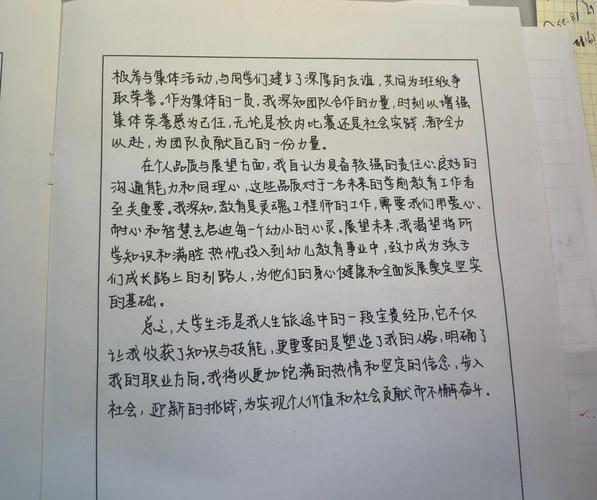 极参与集体活动,与同学们建立了深厚的友谊,共同为班级争
取荣誉。作为集体的一员,我深知团队合作的力量,时刻以增强
集体荣誉感为己任,无论是校内比赛还是社会实践,都全力
以赴,为团队贡献自己的一份力量。
在个人品质与展望方面,我自认为具备较强的责任心、良好的
沟通能力和同理心,这些品质对于一名未来的学前教育工作者
至关重要。我深知,教育是灵魂工程师的工作,需要我们用爱心、
耐心和智慧去启迪每一个幼小的心灵。展望未来,我渴望将所
学知识和满腔热忱投入到幼儿教育事业中,致力成为孩子
们成长路上的引路人,为他们的身心健康和全面发展奠定坚实
的基础。
总之,大学生活是我人生旅途中的一段宝贵经历,它不仅
让我收获了知识与技能,更重要的是塑造了我的人格,明确了
我的职业方向。我将以更加饱满的热情和坚定的信念,步入
社会,迎新的挑战,为实现个人价值和社会贡献而不懈奋斗。